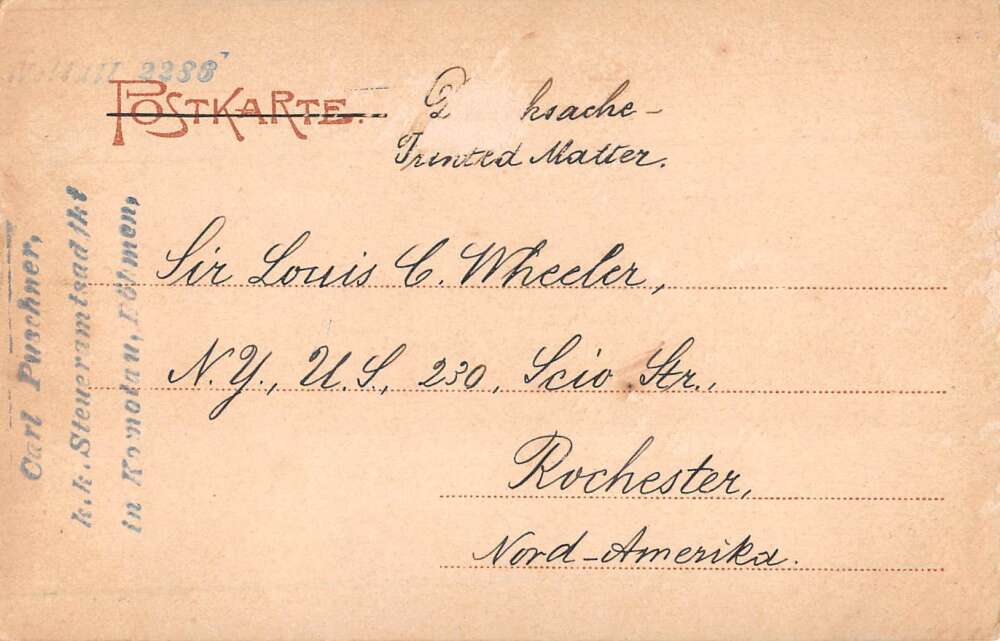 2286
POSTKARTE.
ksache-
Printed Matter.
Carl Puschner,
k.k. Steueramtsadjkt
in Komotau, Böhmen,
Sir Louis C. Wheeler,
N.Y., U.S, 230, Scio Str.,
Rochester,
Nord-Amerika.